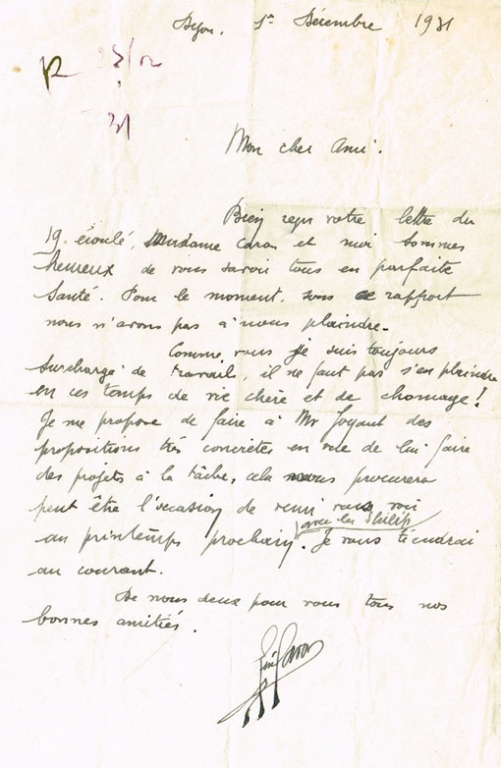 Dijon. 1er Décembre 1931
R 23/12
31
Mon cher Ami.
Bien reçu votre lettre du
19 écoulé, Madame Caron et moi sommes
heureux de vous savoir tous en parfaite
santé. Pour le moment, sous ce rapport
nous n'avons pas à nous plaindre.
Comme vous je suis toujours
surchargé de travail, il ne faut pas s'en plaindre
en ces temps de vie chère et de chomage!
Je me propose de faire à Mr Joyant des
propositions très concrètes en vue de lui faire
des projets à la tâche, cela nous procurera
peut être l'occasion de venir vous voir
avec les
au printemps prochain. Je vous tiendrai
au courant.
De nous deux pour vous tous nos
bonnes amitiés.
Caron